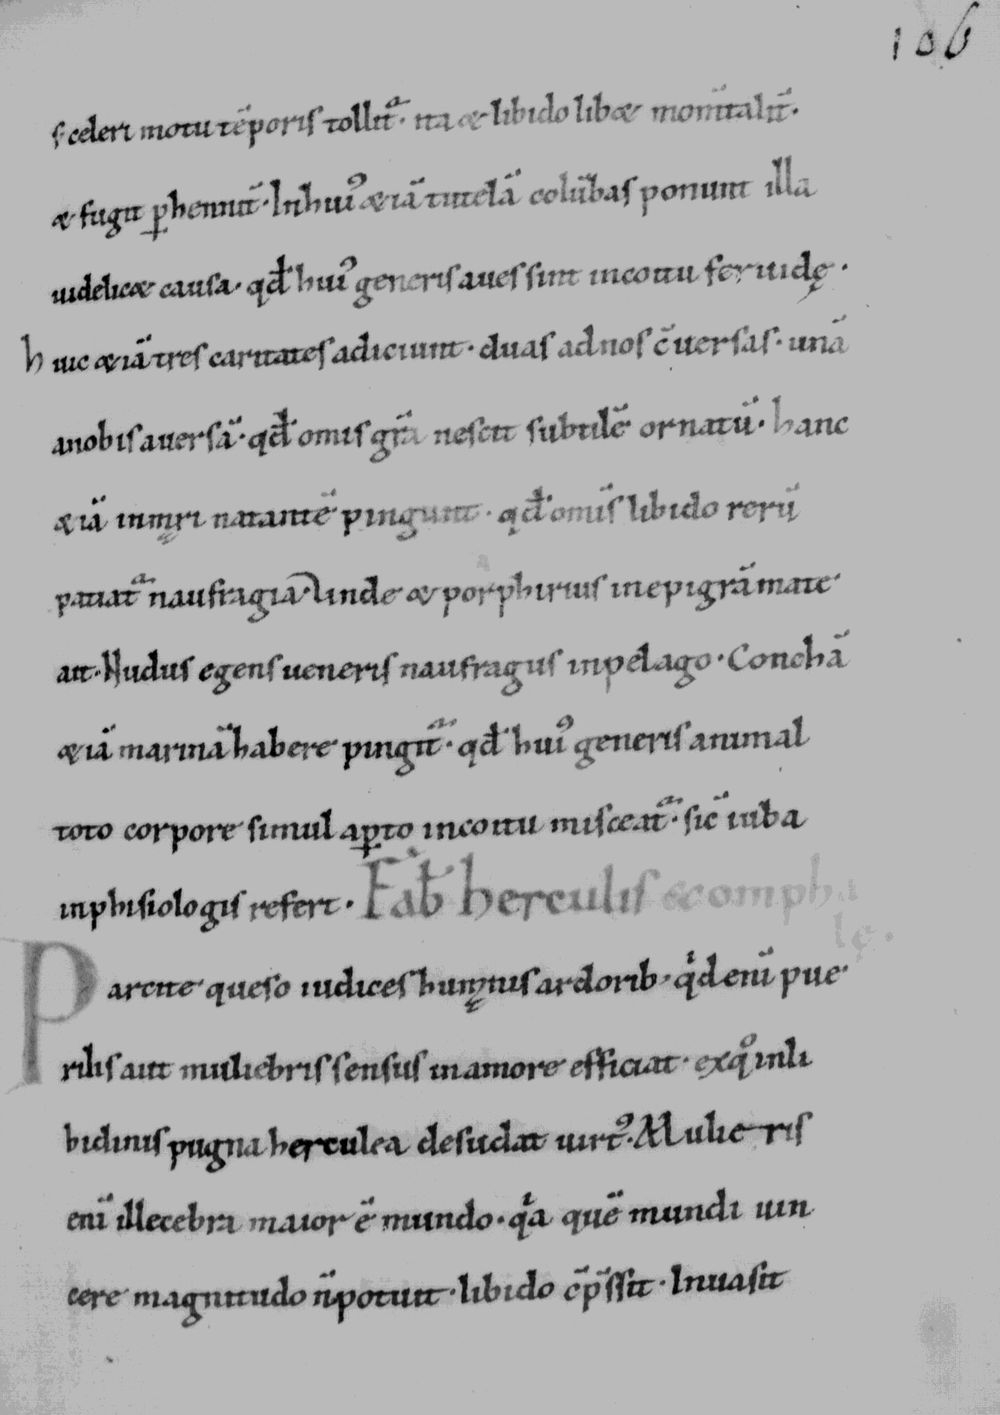 106
sceleri motu tēporis tollitᷓ· ita & libido libæ momtalit̄·
& fugit ꝑhennit̄· In hui᾽ & iā tutelā colūbas ponunt illa
uidelicæ causa· qđ hui᾽ generis aues sint in coitu feruidę·
huic & iā tres caritates adiciunt· duas ad nos c̄uersas· unā
a nobis auersā· qđ omis gr̄a nescit subtilē ornatū· hanc
& iā in mari natantē pingunt· qđ omīs libido rerū
patiatᷓ naufragia· Unde & porphirius in epigrāmate
ait· Nudus egens ueneris naufragus in pelago· Conchā
& iā marinā habere pingitᷓ· qđ hui᾽ generis animal
toto corpore simul aꝑto in coitu misceatᷓ· sic̄ iuba
in phisiologis refert· Fab̄ herculis & compha
lę·
Parcite queso iudices humanis ardorib· qͥd enī pue
rilis aut muliebris sensus in amore efficiat· ex qͦ in li
bidinis pugna herculea desudat uirt᾽· Mulieris
enī illecebra maior ē mundo· qͥa quē mundi uin
cere magnitudo n̄ potuit· libido c̄p̄ssit· Inuasit